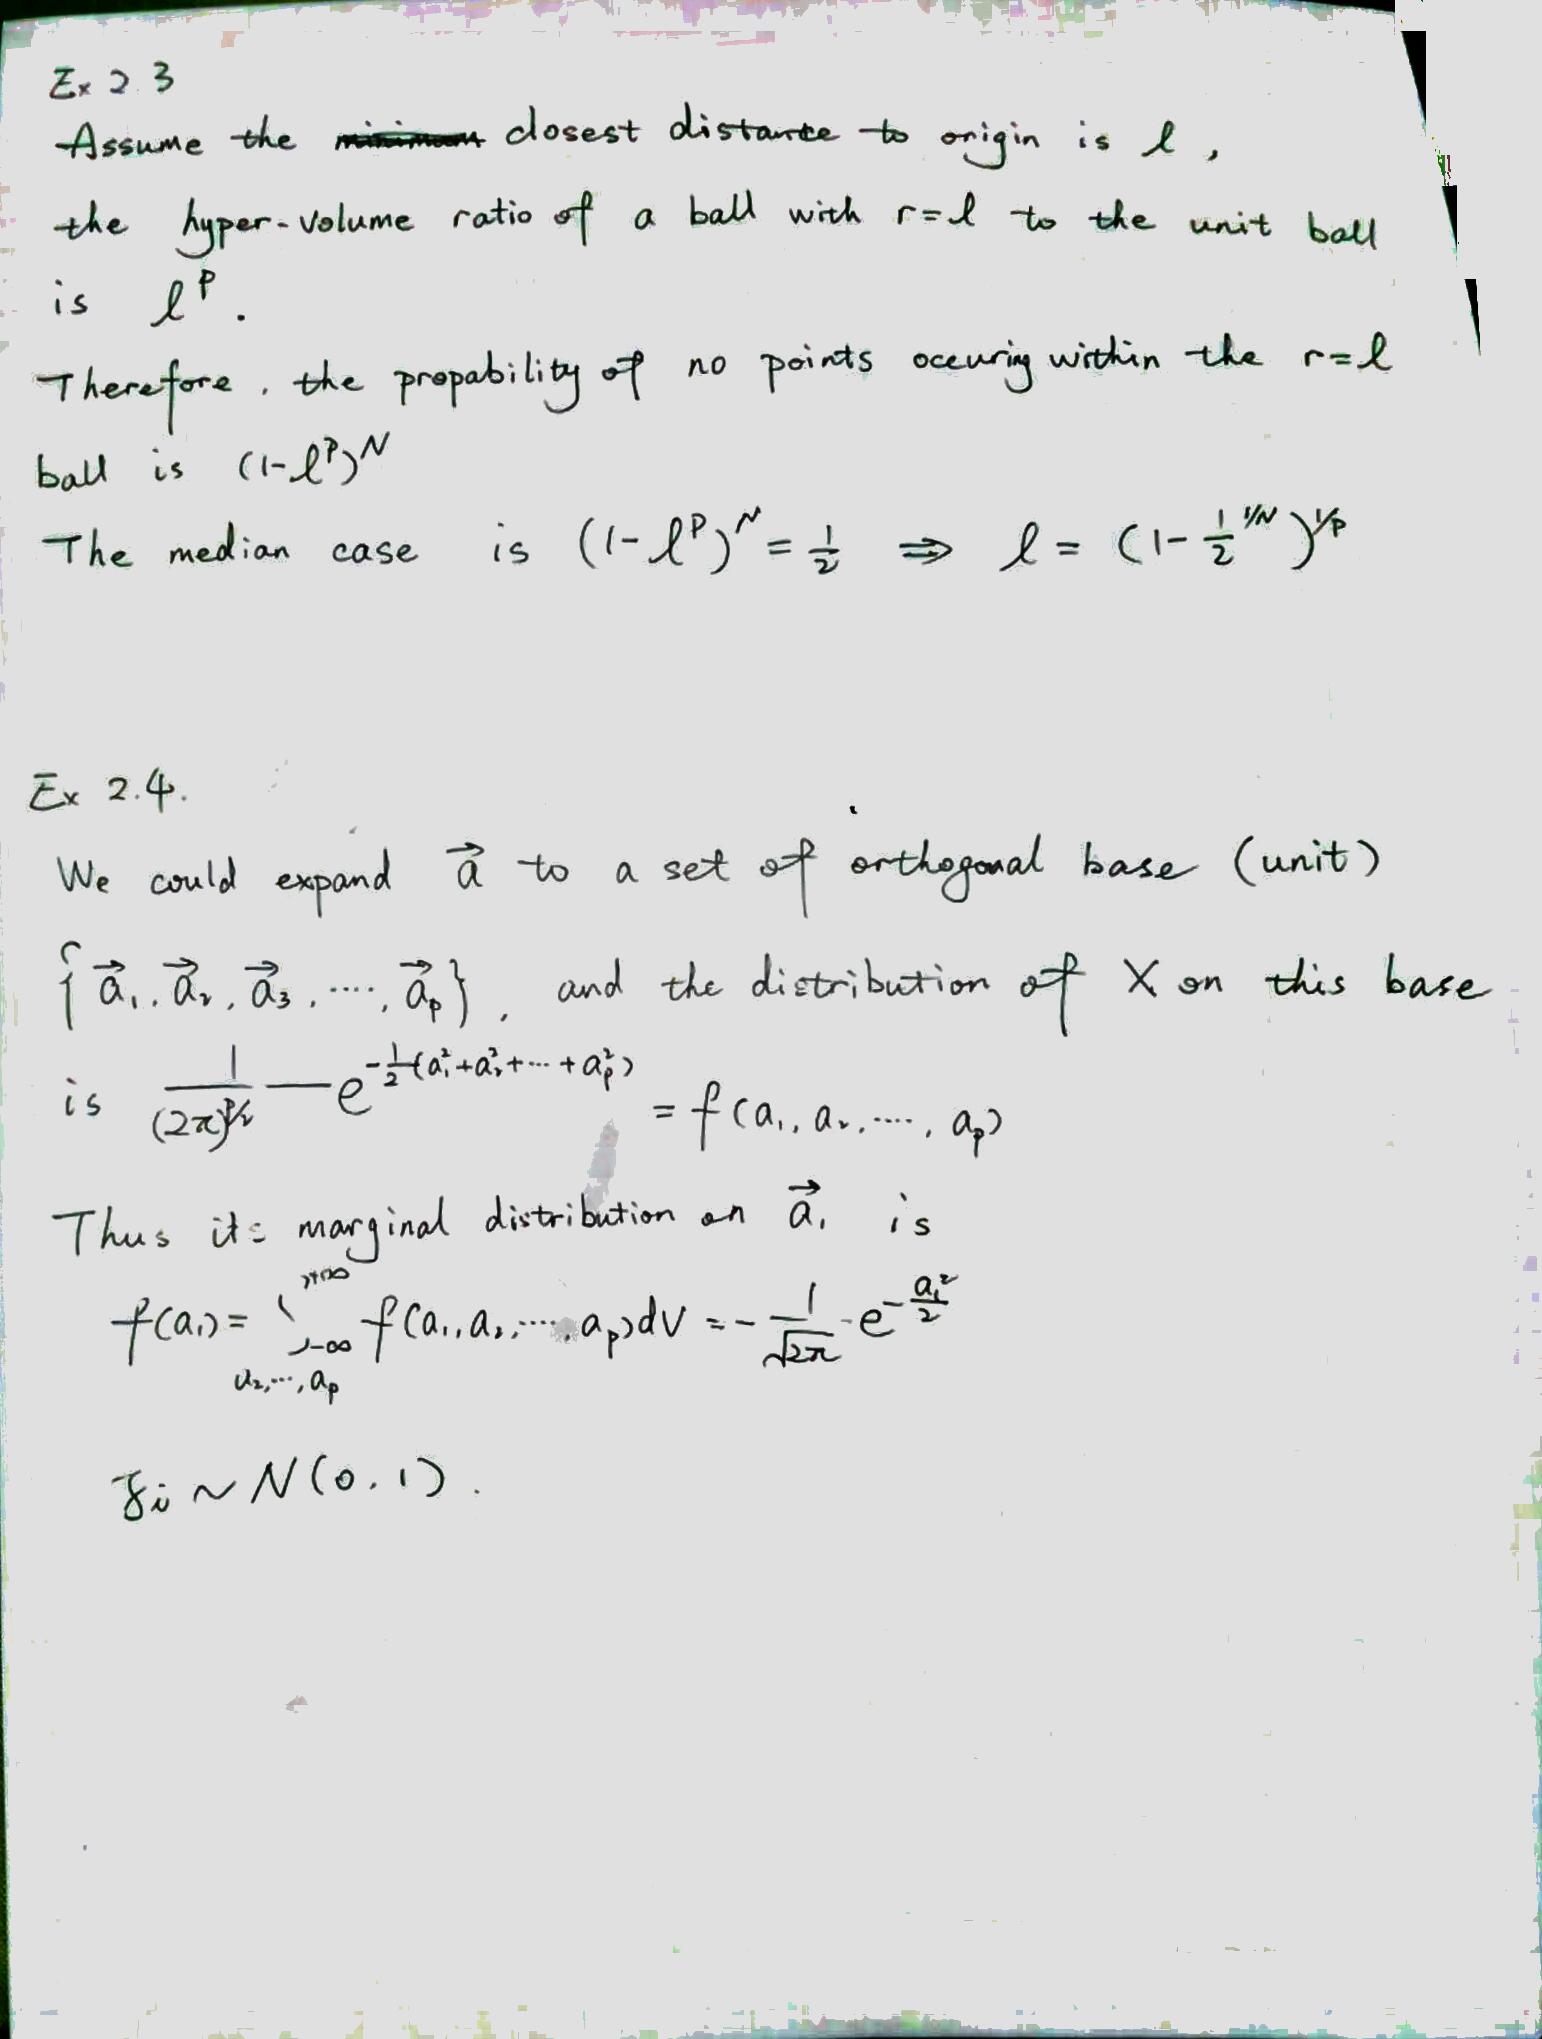 Ex 2.3
Assume the minimum closest distance to origin is l,
the hyper-volume ratio of a ball with r=l to the unit ball
is l^p.
Therefore, the propability of no points occuring within the r=l
ball is (1-l^p)^N
The median case is (1-l^p)^N = 1/2 ⇒ l = (1-1/2^{1/N})^{1/p}
Ex 2.4.
We could expand a⃗ to a set of orthogonal base (unit)
{a⃗₁, a⃗₂, a⃗₃, ...., a⃗_p}, and the distribution of X on this base
is 1/(2π)^{p/2} e^{-1/2(a₁²+a₂²+...+a_p²)} = f(a₁, a₂, ...., a_p)
Thus its marginal distribution on a⃗₁ is
f(a₁) = ∫_{-∞}^{+∞} f(a₁, a₂, ...., a_p)dV = - 1/√2π e^{-a₁²/2}
a₂, ..., a_p
z_i ~ N(0,1).